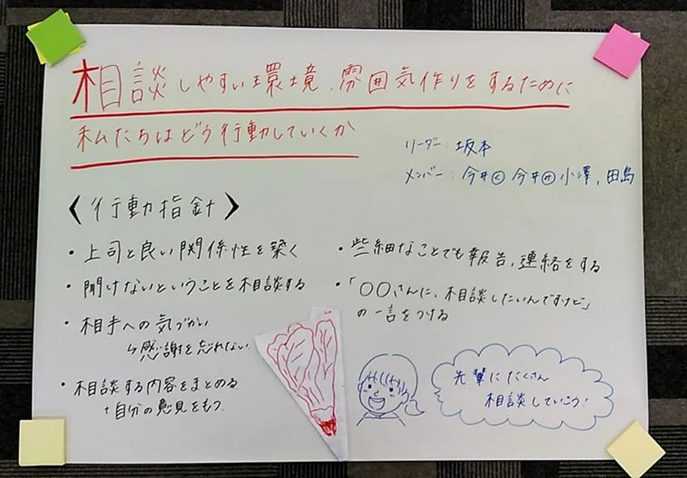 相談しやすい環境、雰囲気作りをするために
私たちはどう行動していくか
リーダー:坂本
メンバー:今井く 今井か 小澤、田島
〈行動指針〉
・上司と良い関係性を築く
・聞けないということを相談する
・相手への気づかい
↳感謝を忘れない
・相談する内容をまとめる
+自分の意見をもつ
・些細なことでも報告、連絡をする
・「〇〇さんに、相談したいんですけど」
の一言をつける
先輩にたくさん
相談していこう!